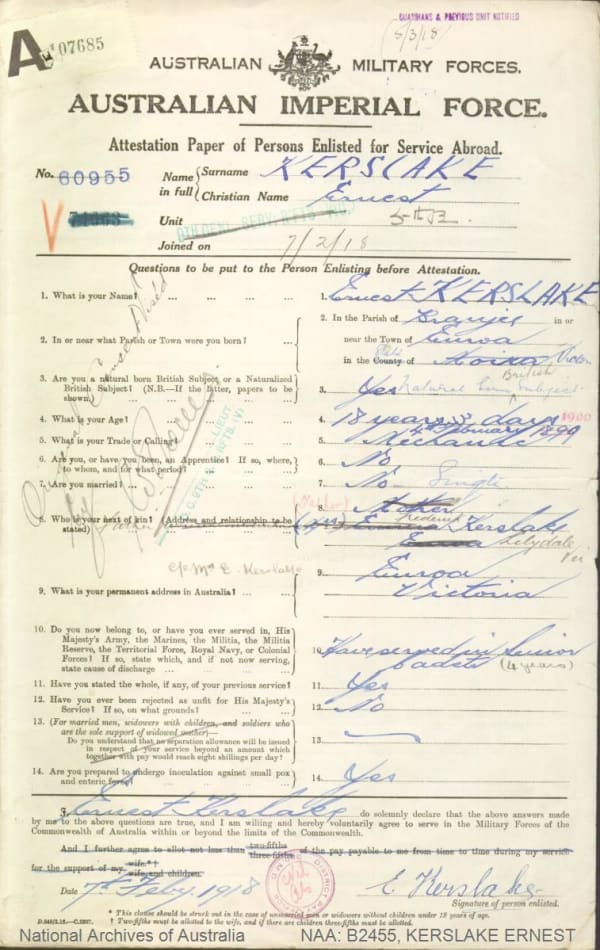 GUARDIANS & PREVIOUS UNIT NOTIFIED
5/3/18
A 107685
AUSTRALIAN MILITARY FORCES.
AUSTRALIAN IMPERIAL FORCE.
Attestation Paper of Persons Enlisted for Service Abroad.
No. 60955
Name in full { Surname KERSLAKE
Christian Name Ernest
V
Unit
Joined on 7/2/18
Questions to be put to the Person Enlisting before Attestation.
1. What is your Name? ... ... ... ... 1. Ernest KERSLAKE
2. In or near what Parish or Town were you born? ... 2. In the Parish of Branjee in or
near the Town of Euroa
in the County of
3. Are you a natural born British Subject or a Naturalized British Subject? (N.B.—If the latter, papers to be shown.) ... 3. Yes Natural born British Subject
4. What is your Age? ... ... ... 4. 18 years 3 days
4th February 1899 1900
5. What is your Trade or Calling? ... 5. Mechanic
6. Are you, or have you been, an Apprentice? If so, where, to whom, and for what period? ... 6. No
7. Are you married? ... ... ... 7. No Single
8. Who is your next of kin? (Address and relationship to be stated) 8. (Father) Mother
Frederick Kerslake
Lilydale Vic
c/o Mrs E. Kerslake
9. What is your permanent address in Australia? ... 9. Euroa
Victoria
10. Do you now belong to, or have you ever served in, His Majesty's Army, the Marines, the Militia, the Militia Reserve, the Territorial Force, Royal Navy, or Colonial Forces? If so, state which, and if not now serving, state cause of discharge ... 10. Have served in Senior
Cadets (4 years)
11. Have you stated the whole, if any, of your previous service? 11. Yes
12. Have you ever been rejected as unfit for His Majesty's Service? If so, on what grounds? ... 12. No
13. (For married men, widowers with children, and soldiers who are the sole support of widowed mother)—
Do you understand that no separation allowance will be issued in respect of your service beyond an amount which together with pay would reach eight shillings per day? 13.
14. Are you prepared to undergo inoculation against small pox and enteric fever? ... 14. Yes
I, Ernest Kerslake do solemnly declare that the above answers made
by me to the above questions are true, and I am willing and hereby voluntarily agree to serve in the Military Forces of the
Commonwealth of Australia within or beyond the limits of the Commonwealth.
And I further agree to allot not less than two-fifths three-fifths of the pay payable to me from time to time during my service
for the support of my wife.*† wife and children.
Date 7th Feby. 1918
E Kerslake
Signature of person enlisted.
* This clause should be struck out in the case of unmarried men or widowers without children under 18 years of age.
† Two-fifths must be allotted to the wife, and if there are children three-fifths must be allotted.
National Archives of Australia
NAA: B2455, KERSLAKE ERNEST